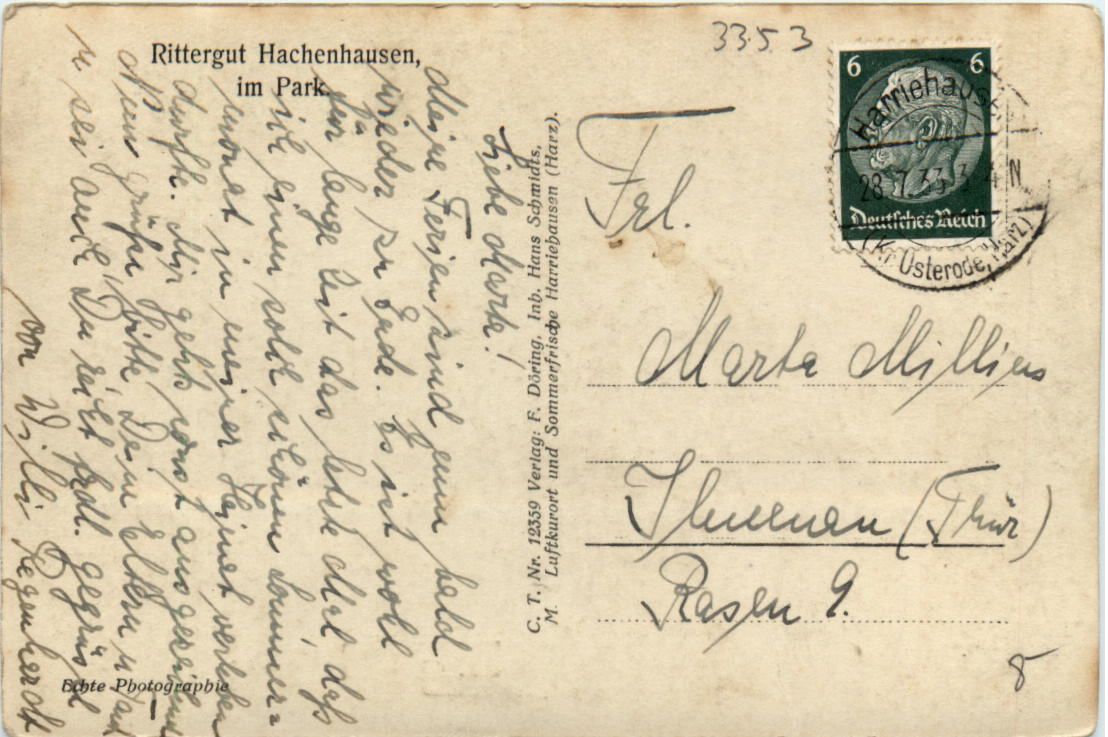 Rittergut Hachenhausen,
im Park.
3353
6 6
Deutsches Reich
Harriehausen
28.7.33. 3-4 N
(Kr. Osterode, Harz)
Liebe Marta!
Meine Ferien sind nun bald
wieder zu Ende. Es ist wohl
für lange Zeit das letzte Mal, daß
ich einen solch schönen Sommer=
monat in meiner Heimat verleben
durfte. Mir geht's sonst ausgezeichnet
Nun grüße bitte Dein Eltern u.
u. sei auch Du recht frdl. gegrüßt
von Willi Regenhardt
C. T. Nr. 12359 Verlag: F. Döring, Inh. Hans Schmidts,
M Luftkurort und Sommerfrische Harriehausen (Harz).
Frl.
Marta Millies
Ilmenau (Thür)
Rasen 9.
Echte Photographie
8